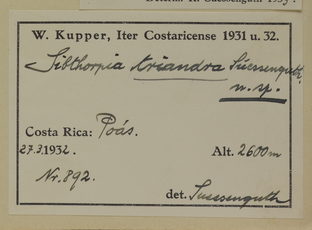 W. Kupper, Iter Costaricense 1931 u. 32.
Sibthorpia triandra Suessenguth
n. sp.
Costa Rica: Poás.
27.3.1932. Alt. 2600m
Nr. 892.
det. Suessenguth